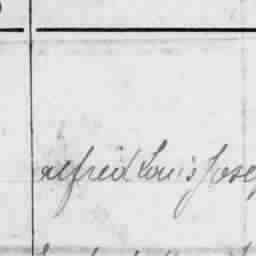 alfred Louis Josep